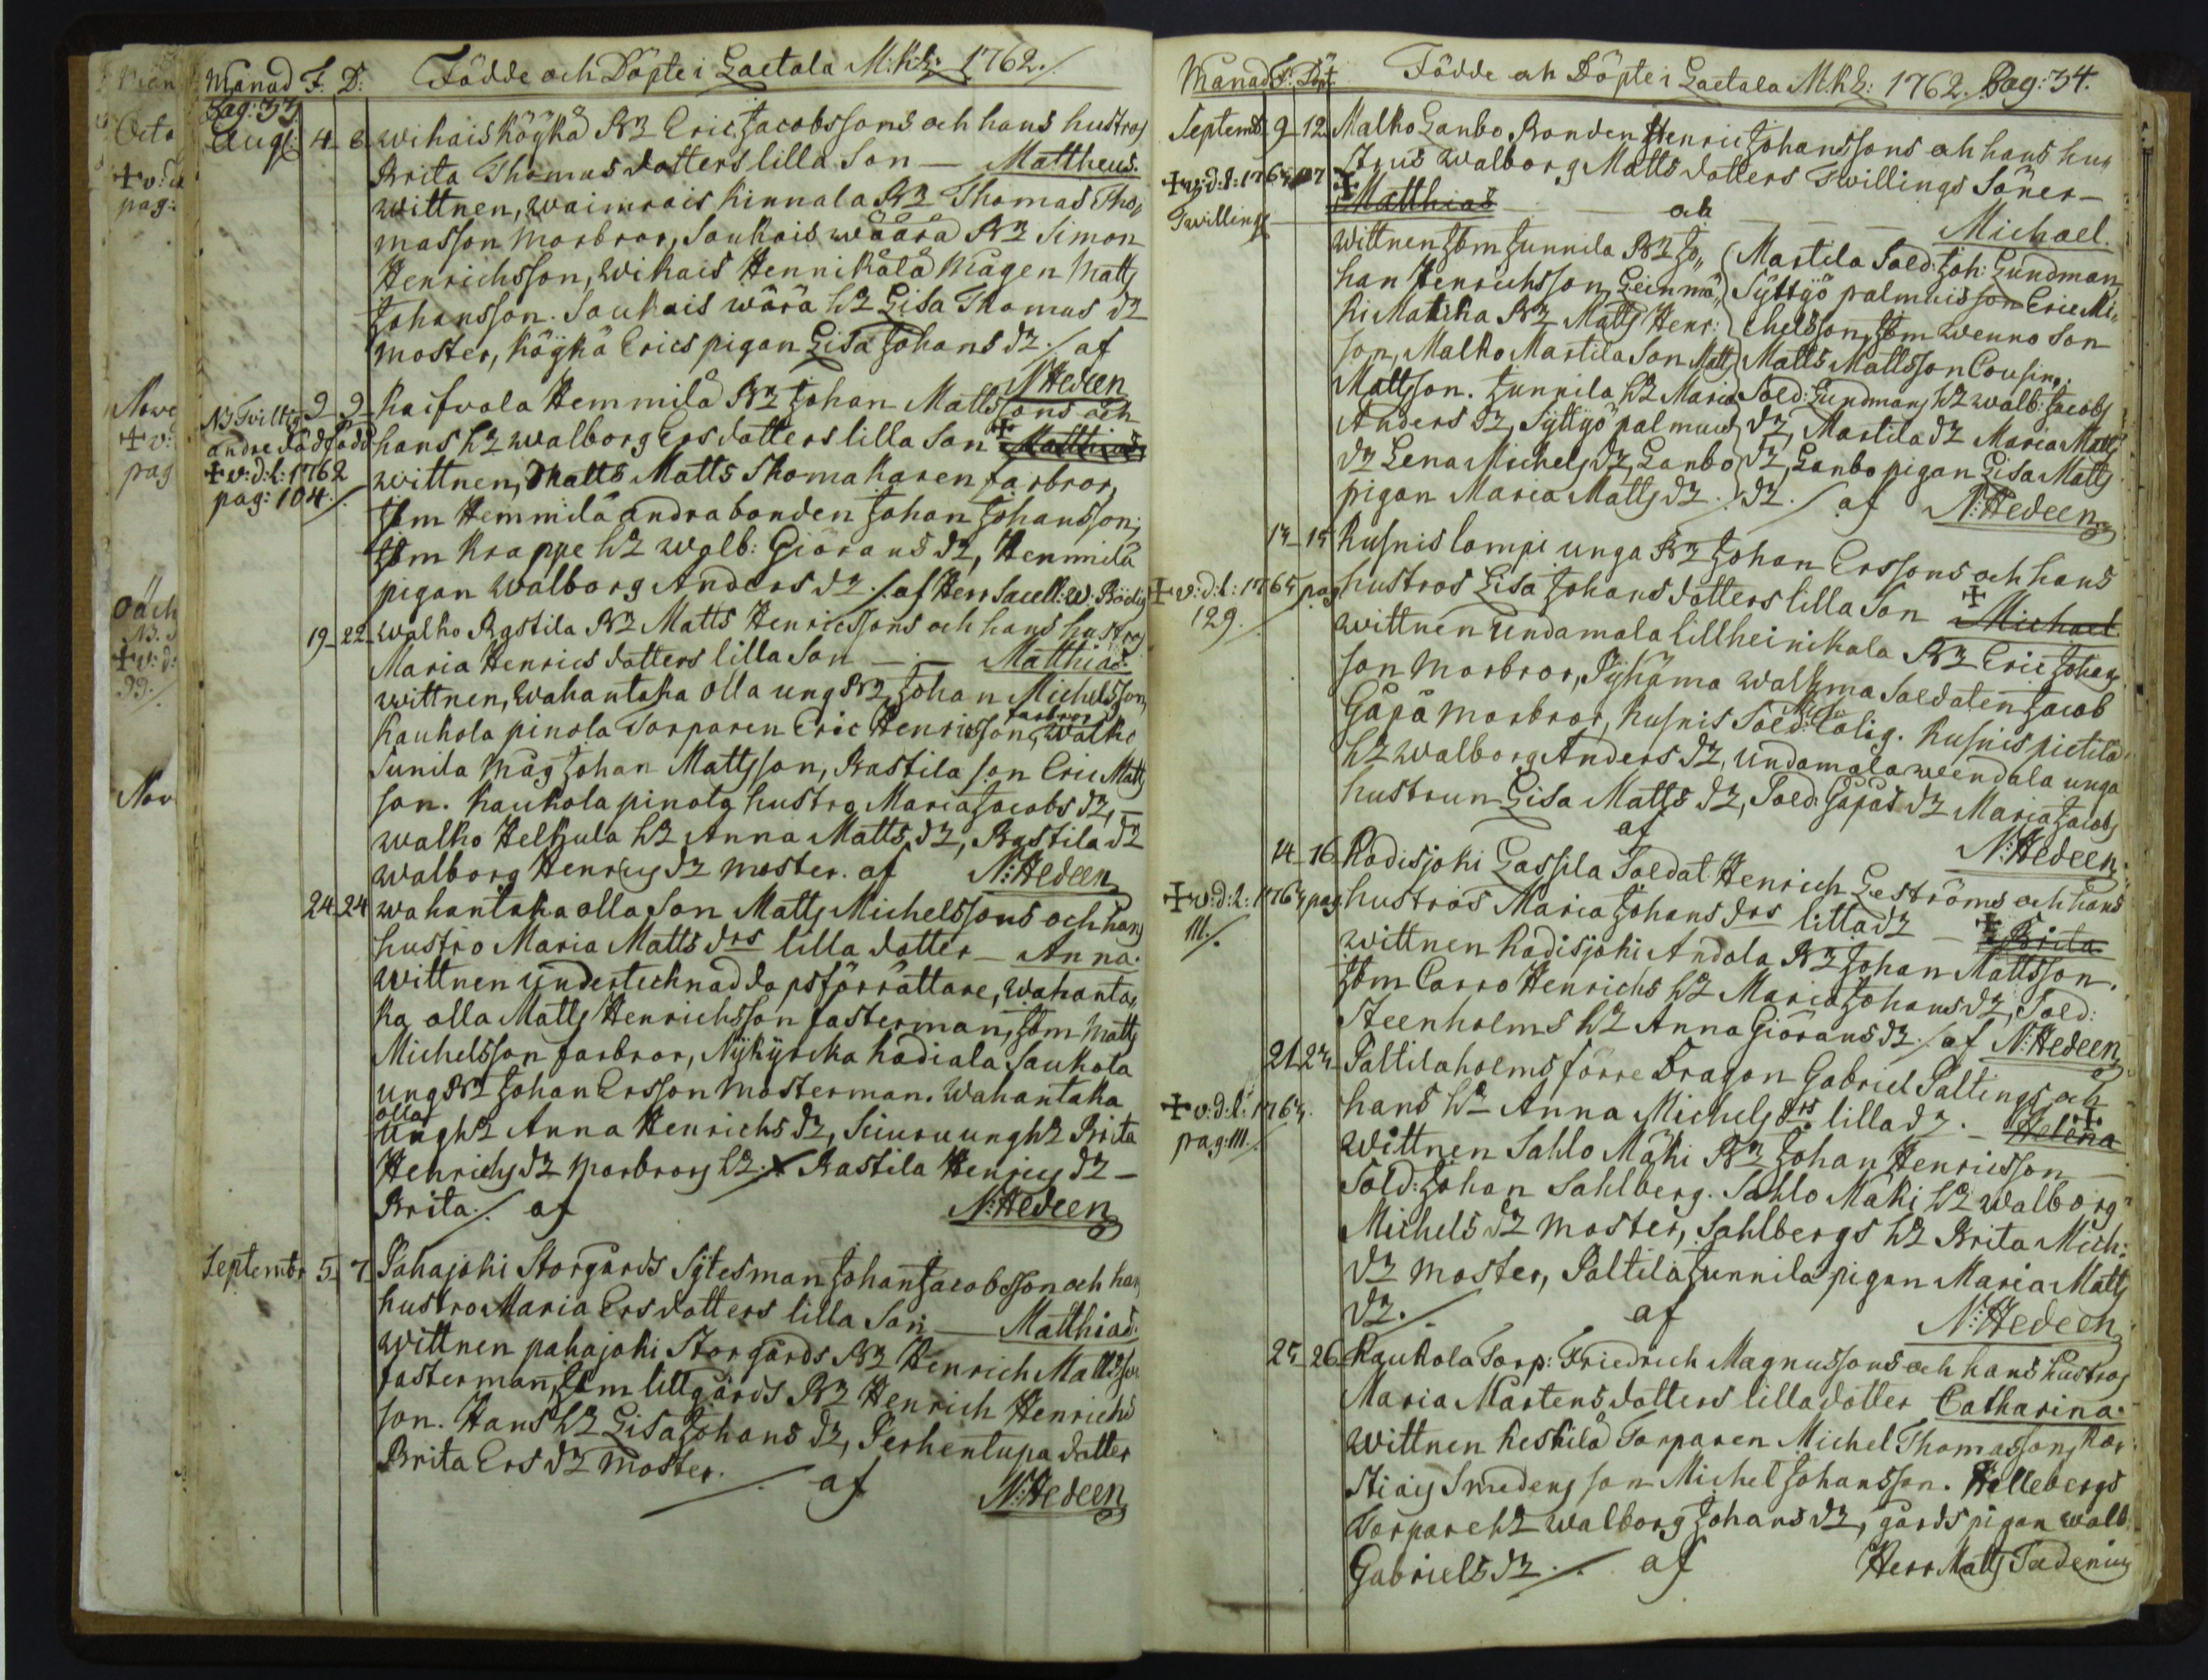 Månad F: D: Födde och Döpte i Laetala M:k:l: 1762./
Pag: 33
Aug: 4 8 wihais köykä B2 Eric Jacobssons och hans hustros
Brita Thomas dotters lilla Son — Mattheus.
wittnen, waimrais kinnala B2 Thomas Tho,
masson morbror, Saukais wäärä B2 Simon
Henrichsson, wikais Hennikälä mågen Matts
Johansson. Saukais wärä h2 Lisa Thomas d2
moster, köykä Erics pigan Lisa Johans d2./ af
N Hedeen
9 9 Kaifvola Hemmilä B2 Johan Mattssons och
NB Tvilling
andre dödfödd hans h2 walborg Ersdotters lilla Son + Matthias
+ v: d: l: 1762
pag: 104./.
wittnen, Matts Matts Skomakaren farbror,
Jtm Hemmilä andra bonden Johan Johansson;
Jtm Krappe h2 walb: Giörans d2, Hemmilä
pigan walborg Anders d2./ af Herr Sacell: W: Rödig
19 22 walho Rastila B2 Matts Henricssons och hans hustros
Maria Henrics dotters lilla Son — Matthias.
wittnen, wahantaka olla ung B2 Johan Michelsson,
farbror
Kauhola pinola Torparen Eric Henricsson, walho
Sunila måg Johan Mattsson, Rastila son Eric Matts
son. Kaukola pinola hustro Maria Jacobs d2,
walho Helkula h2 Anna Matts d2, Rastila d2
walborg Henrics d2 moster. af N: Hedeen
24 24 wahantaka olla Son Matts Michelssons och hans
hustro Maria Matts drs lilla dotter — Anna.
wittnen undertecknad dopsförrättare, wahanta,
ka olla Matts Henrichsson fasterman, Jtm Matts
Michelsson farbror, Nykyrcka kodiala Saukola
ung B2 Johan Ersson mosterman. wahantaka
olla
ung h2 Anna Henrichs d2, Seuru ung h2 Brita
Henrichs d2 morbrors h2. Rastila Henrics d2 —
Brita./. af N: Hedeen
Septembr 5 7 Pahajoki Storgårds Sytesman Johan Jacobsson och hans
hustro Maria Ersdotters lilla Son — Matthias.
wittnen pahajoki Storgårds B2 Henrich Mattsson
fasterman, Jtm lillgårds B2 Henrich Henrichs
son. Hans h2 Lisa Johans d2, Perhentupa dotter
Brita Ers d2 moster. / af
N: Hedeen
Månad F: Döpt. Födde ock Döpte i Laetala M:k:l: 1762. Pag: 34.
Septemb 9 12 Malko Lanbo Bonden Henric Johanssons ock hans hu,
strus walborg Matts dotters Twillings Söner —
+ v: d: l: 1765 127
Twilling
+ Matthias — ock — Michael.
wittnen Jtm Junnila B2 Jo,,
han Henrichsson, Leinmä,,
ki Matika B2 Matts Henr:
son, Malko Martila Son Matts
Mattsson. Junnila h2 Maria
Anders d2, Syttyö palmus
d2 Lena Michels d2, Lanbo
pigan Maria Matts d2.
Martila Sold: Joh: Lundman,
Syttyö palmuis son Eric Mi,
chelsson, Jtm wenno Son
Matts Mattsson Cousin,
Sold: Lundmans h2 walb: Jacobs
d2, Martila d2 Maria Matts
d2, Lanbo pigan Lisa Matts
d2. / af N: Hedeen
13 15 Kusnis lampi unga B2 Johan Erssons och hans
+ v: d: l: 1765 pag
129./
hustros Lisa Johans dotters lilla Son + Michael
wittnen undamala lillheinikala B2 Eric Johans
son morbror, Pyhäma walkma Soldaten Jacob
Gåpå morbror, kusnis Sold: Rolig. kusnis pietilä
h2 walborg Anders d2, undamala weendala unga
hustrun Lisa Matts d2, Sold: Gåpås d2 Maria Jacobs
af N: Hedeen
14 16 Kodisjoki Lassila Soldat Henrich Leströms och hans
+ v: d: l: 1763 pag
111./.
hustros Maria Johans drs lilla d2 — + Brita.
wittnen kodisjoki Andola B2 Johan Mattsson.
Jtm Carro Henrichs h2 Maria Johans d2, Sold:
Steenholms h2 Anna Giörans d2./ af N: Hedeen
21 23 Paltila holms förre Dragon Gabriel Paltings och
+ v: d: l: 1763.
pag: 111./
hans h2 Anna Michels drs lilla d2. — + Helena
wittnen Sahlo Mäki B2 Johan Henricsson
Sold: Johan Sahlberg. Sahlo Mäki h2 walborg
Michels d2 moster, Sahlbergs h2 Brita Mich:
d2 moster, Paltila Junnila pigan Maria Matts
d2./. af N: Hedeen
25 26 Kaukola Torp: Friedrich Magnussons och hans hustros
Maria Mårtens dotters lilla dotter Catharina.
wittnen keskilä Torparen Michel Thomasson, Kor
stiais Smedens son Michel Johansson. Hellebergs
Torpare h2 walborg Johans d2, gårds pigan walb:
Gabriels d2./. af Herr Matts Tadenius